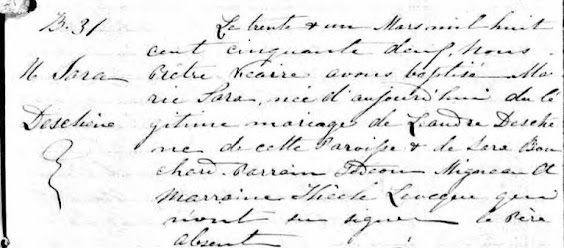 B. 31
M Sara
Deschêne
Le trente & un Mars mil huit
cent cinquante neuf, nous
Prêtre Vicaire avons baptisé Ma
rie Sara, née d'aujourd'hui du lé
gitime mariage de Léandre Desche
ne de cette Paroisse & de Sara Bou
chard. Parrain Migneau &
Marraine Thècle Levecque qui
n'ont su signer le Père
absent